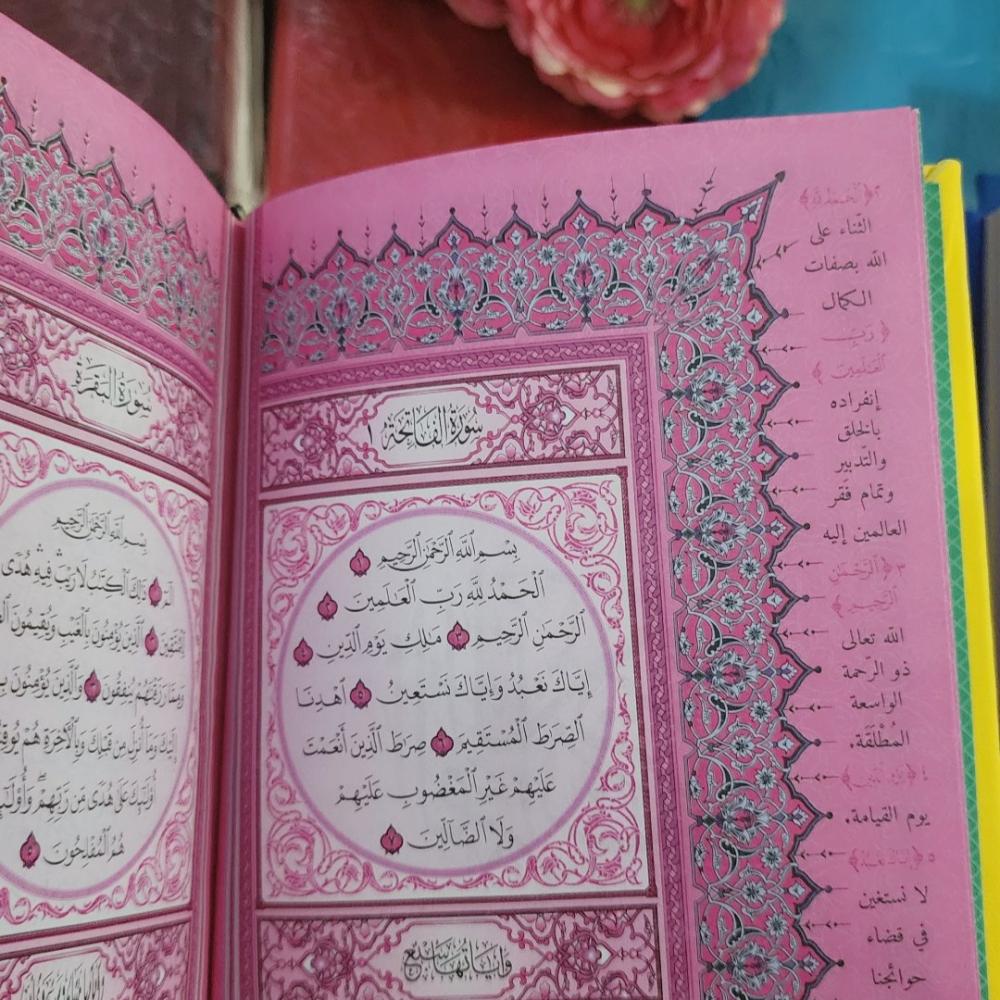 سُورَةُ الفَاتِحَةِ ١
بِسْمِ ٱللَّهِ ٱلرَّحْمَٰنِ ٱلرَّحِيمِ ١
ٱلْحَمْدُ لِلَّهِ رَبِّ ٱلْعَٰلَمِينَ ٢
ٱلرَّحْمَٰنِ ٱلرَّحِيمِ ٣ مَٰلِكِ يَوْمِ ٱلدِّينِ ٤
إِيَّاكَ نَعْبُدُ وَإِيَّاكَ نَسْتَعِينُ ٥ ٱهْدِنَا
ٱلصِّرَٰطَ ٱلْمُسْتَقِيمَ ٦ صِرَٰطَ ٱلَّذِينَ أَنْعَمْتَ
عَلَيْهِمْ غَيْرِ ٱلْمَغْضُوبِ عَلَيْهِمْ
وَلَا ٱلضَّآلِّينَ ٧
وَآيَاتُهَا سَبْعٌ
٢ ﴿ٱلْحَمْدُ لِلَّهِ﴾
الثّناء على
الله بصفات
الكمال
﴿رَبِّ
ٱلْعَٰلَمِينَ﴾
إنفراده
بالخلق
والتّدبير
وتمام فقر
العالمين إليه
٣ ﴿ٱلرَّحْمَٰنِ
ٱلرَّحِيمِ﴾
الله تعالى
ذو الرّحمة
الواسعة
المُطْلَقَة.
٤ ﴿يَوْمِ ٱلدِّينِ﴾
يوم القيامة.
٥ ﴿إِيَّاكَ نَعْبُدُ﴾
لا نستغين
في قضاء
حوائجنا
سُورَةُ البَقَرَةِ
بِسْمِ ٱللَّهِ ٱلرَّحْمَٰنِ ٱلرَّحِيمِ
الٓمٓ ١ ذَٰلِكَ ٱلْكِتَٰبُ لَا رَيْبَ فِيهِ هُدًى
لِّلْمُتَّقِينَ ٢ ٱلَّذِينَ يُؤْمِنُونَ بِٱلْغَيْبِ وَيُقِيمُونَ
وَمِمَّا رَزَقْنَٰهُمْ يُنفِقُونَ ٣ وَٱلَّذِينَ يُؤْمِنُونَ
إِلَيْكَ وَمَآ أُنزِلَ مِن قَبْلِكَ وَبِٱلْأَخِرَةِ هُمْ
أُوْلَٰٓئِكَ عَلَىٰ هُدًى مِّن رَّبِّهِمْ
هُمُ ٱلْمُفْلِحُونَ ٥